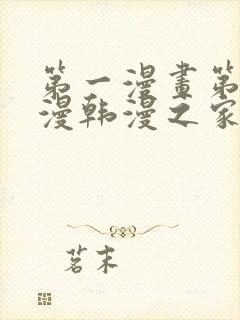 第一漫畫第
漫韩漫之家
茗末